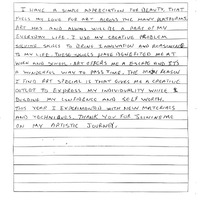 I HAVE A SIMPLE APPRECIATION FOR BEAUTY THAT
FUELS MY LOVE FOR ART ACROSS THE MANY PLATFORMS.
ART HAS AND ALWAYS WILL BE A PART OF MY
EVERYDAY LIFE. I USE MY CREATIVE PROBLEM
SOLVING SKILLS TO BRING INNOVATION AND REASONING
TO MY LIFE. THESE SKILLS HAVE BENEFITED ME AT
WORK AND SCHOOL. ART OFFERS ME A ESCAPE AND IT'S
A WONDERFUL WAY TO PASS TIME. THE MAIN REASON
I FIND ART SPECIAL IS THAT GIVES ME A CREATIVE
OUTLET TO EXPRESS MY INDIVIDUALITY WHILE
BUILDING MY CONFIDENCE AND SELF WORTH.
THIS YEAR I EXPERIMENTED WITH NEW MATERIALS
AND TECHNIQUES. THANK YOU FOR JOINING ME
ON MY ARTISTIC JOURNEY.